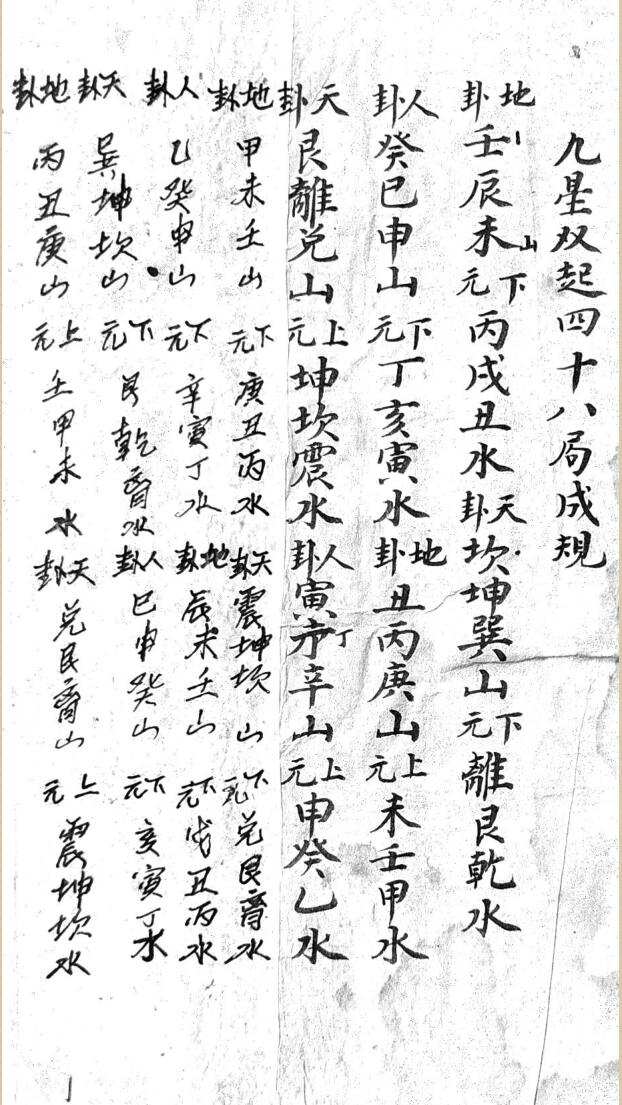 九星双起四十八局成規
地卦壬辰未山下元丙戌丑水天卦坎坤巽山下元離艮乾水
人卦癸巳申山下元丁亥寅水地卦丑丙庚山上元未壬甲水
天卦艮離兌山上元坤坎震水人卦寅丁辛山上元申癸乙水
地卦甲未壬山下元庚丑丙水天卦震坤坎山下元兌艮离水
人卦乙癸申山下元辛寅丁水地卦辰未壬山下元戌丑丙水
天卦巽坤坎山下元艮乾离水人卦巳申癸山下元亥寅丁水
地卦丙丑庚山上元壬甲未水天卦兌艮离山上元震坤坎水